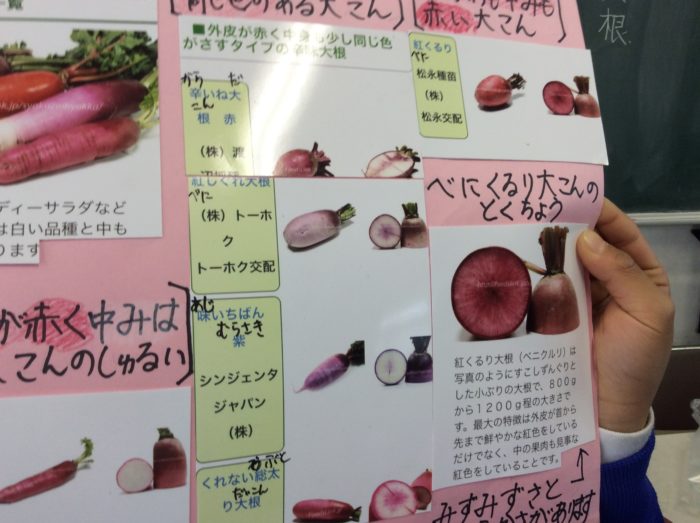 一覧
ディーサラダなど
は白い品種と中も
ります
が赤く中みは
こんのしゅるい]
同じ色のある大こん]
■外皮が赤く中身も少し同じ色
がさすタイプの辛味大根
から だ
辛いね大
こん
根 赤
(株)渡
紅しぐれ大根
べに
(株)トーホ
ク
トーホク交配
あじ
味いちばん
むらさき
紫
シンジェンタ
ジャパン
(株)
くれない総太
だいこん
り大根
中みも
赤い大こん
紅くるり
べに
松永種苗
(株)
松永交配
べにくるり大こんの
とくちょう
紅くるり大根(ベニクルリ)は
写真のようにすこしずんぐりと
した小ぶりの大根で、800g
から1200g程の大きさで
す。最大の特徴は外皮が首から
先まで鮮やかな紅色をしている
だけでなく、中の果肉も見事な
紅色をしていることです。
みずみずさと
根